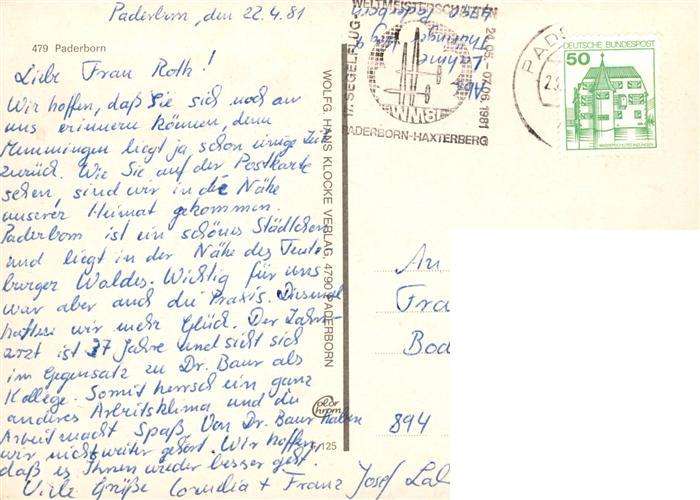 Paderborn, den 22.4.81
479 Paderborn
Liebe Frau Roth!
Wir hoffen, daß Sie sich noch an
uns erinnern können, denn
Memmingen liegt ja schon einige Zeit
zurück. Wie Sie auf der Postkarte
sehen, sind wir in die Nähe
unserer Heimat gekommen.
Paderborn ist ein schönes Städtchen
und liegt in der Nähe des Teuto
burger Waldes. Wichtig für uns
war aber auch die Praxis. Diesmal
hatten wir mehr Glück. Der Zahn-
arzt ist 37 Jahre und sieht sich
im Gegensatz zu Dr. Baur als
Kollege. Somit herrscht ein ganz
anderes Arbeitsklima und die
Arbeit macht Spaß. Von Dr. Baur haben
wir nichts weiter gehört. Wir hoffen,
daß es Ihnen wieder besser geht.
Viele Grüße Cornelia + Franz Josef
WOLFG. HANS KLOCKE VERLAG, 4790 PADERBORN
125
Abs.
Thüringer
4790 Paderborn
17. SEGELFLUG-WELTMEISTERSCHAFTEN
24.05.-07.06.1981
WMS
PADERBORN-HAXTERBERG
PADE
DEUTSCHE BUNDESPOST
50
An
Fra
Bod
894